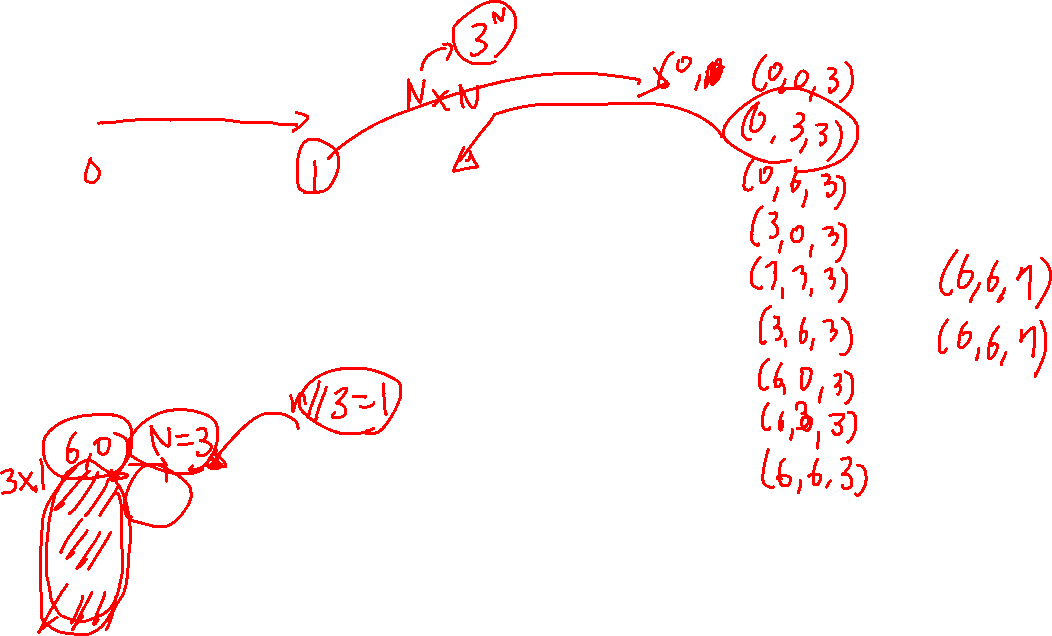 3^N
N×N
(0,
(0,0,3)
(0,3,3)
(0,6,3)
(3,0,3)
(3,3,3)
(3,6,3)
(6,0,3)
(6,3,3)
(6,6,3)
0
1
(6,6,7)
(6,6,7)
n//3=1
6,0
N=3
3×1